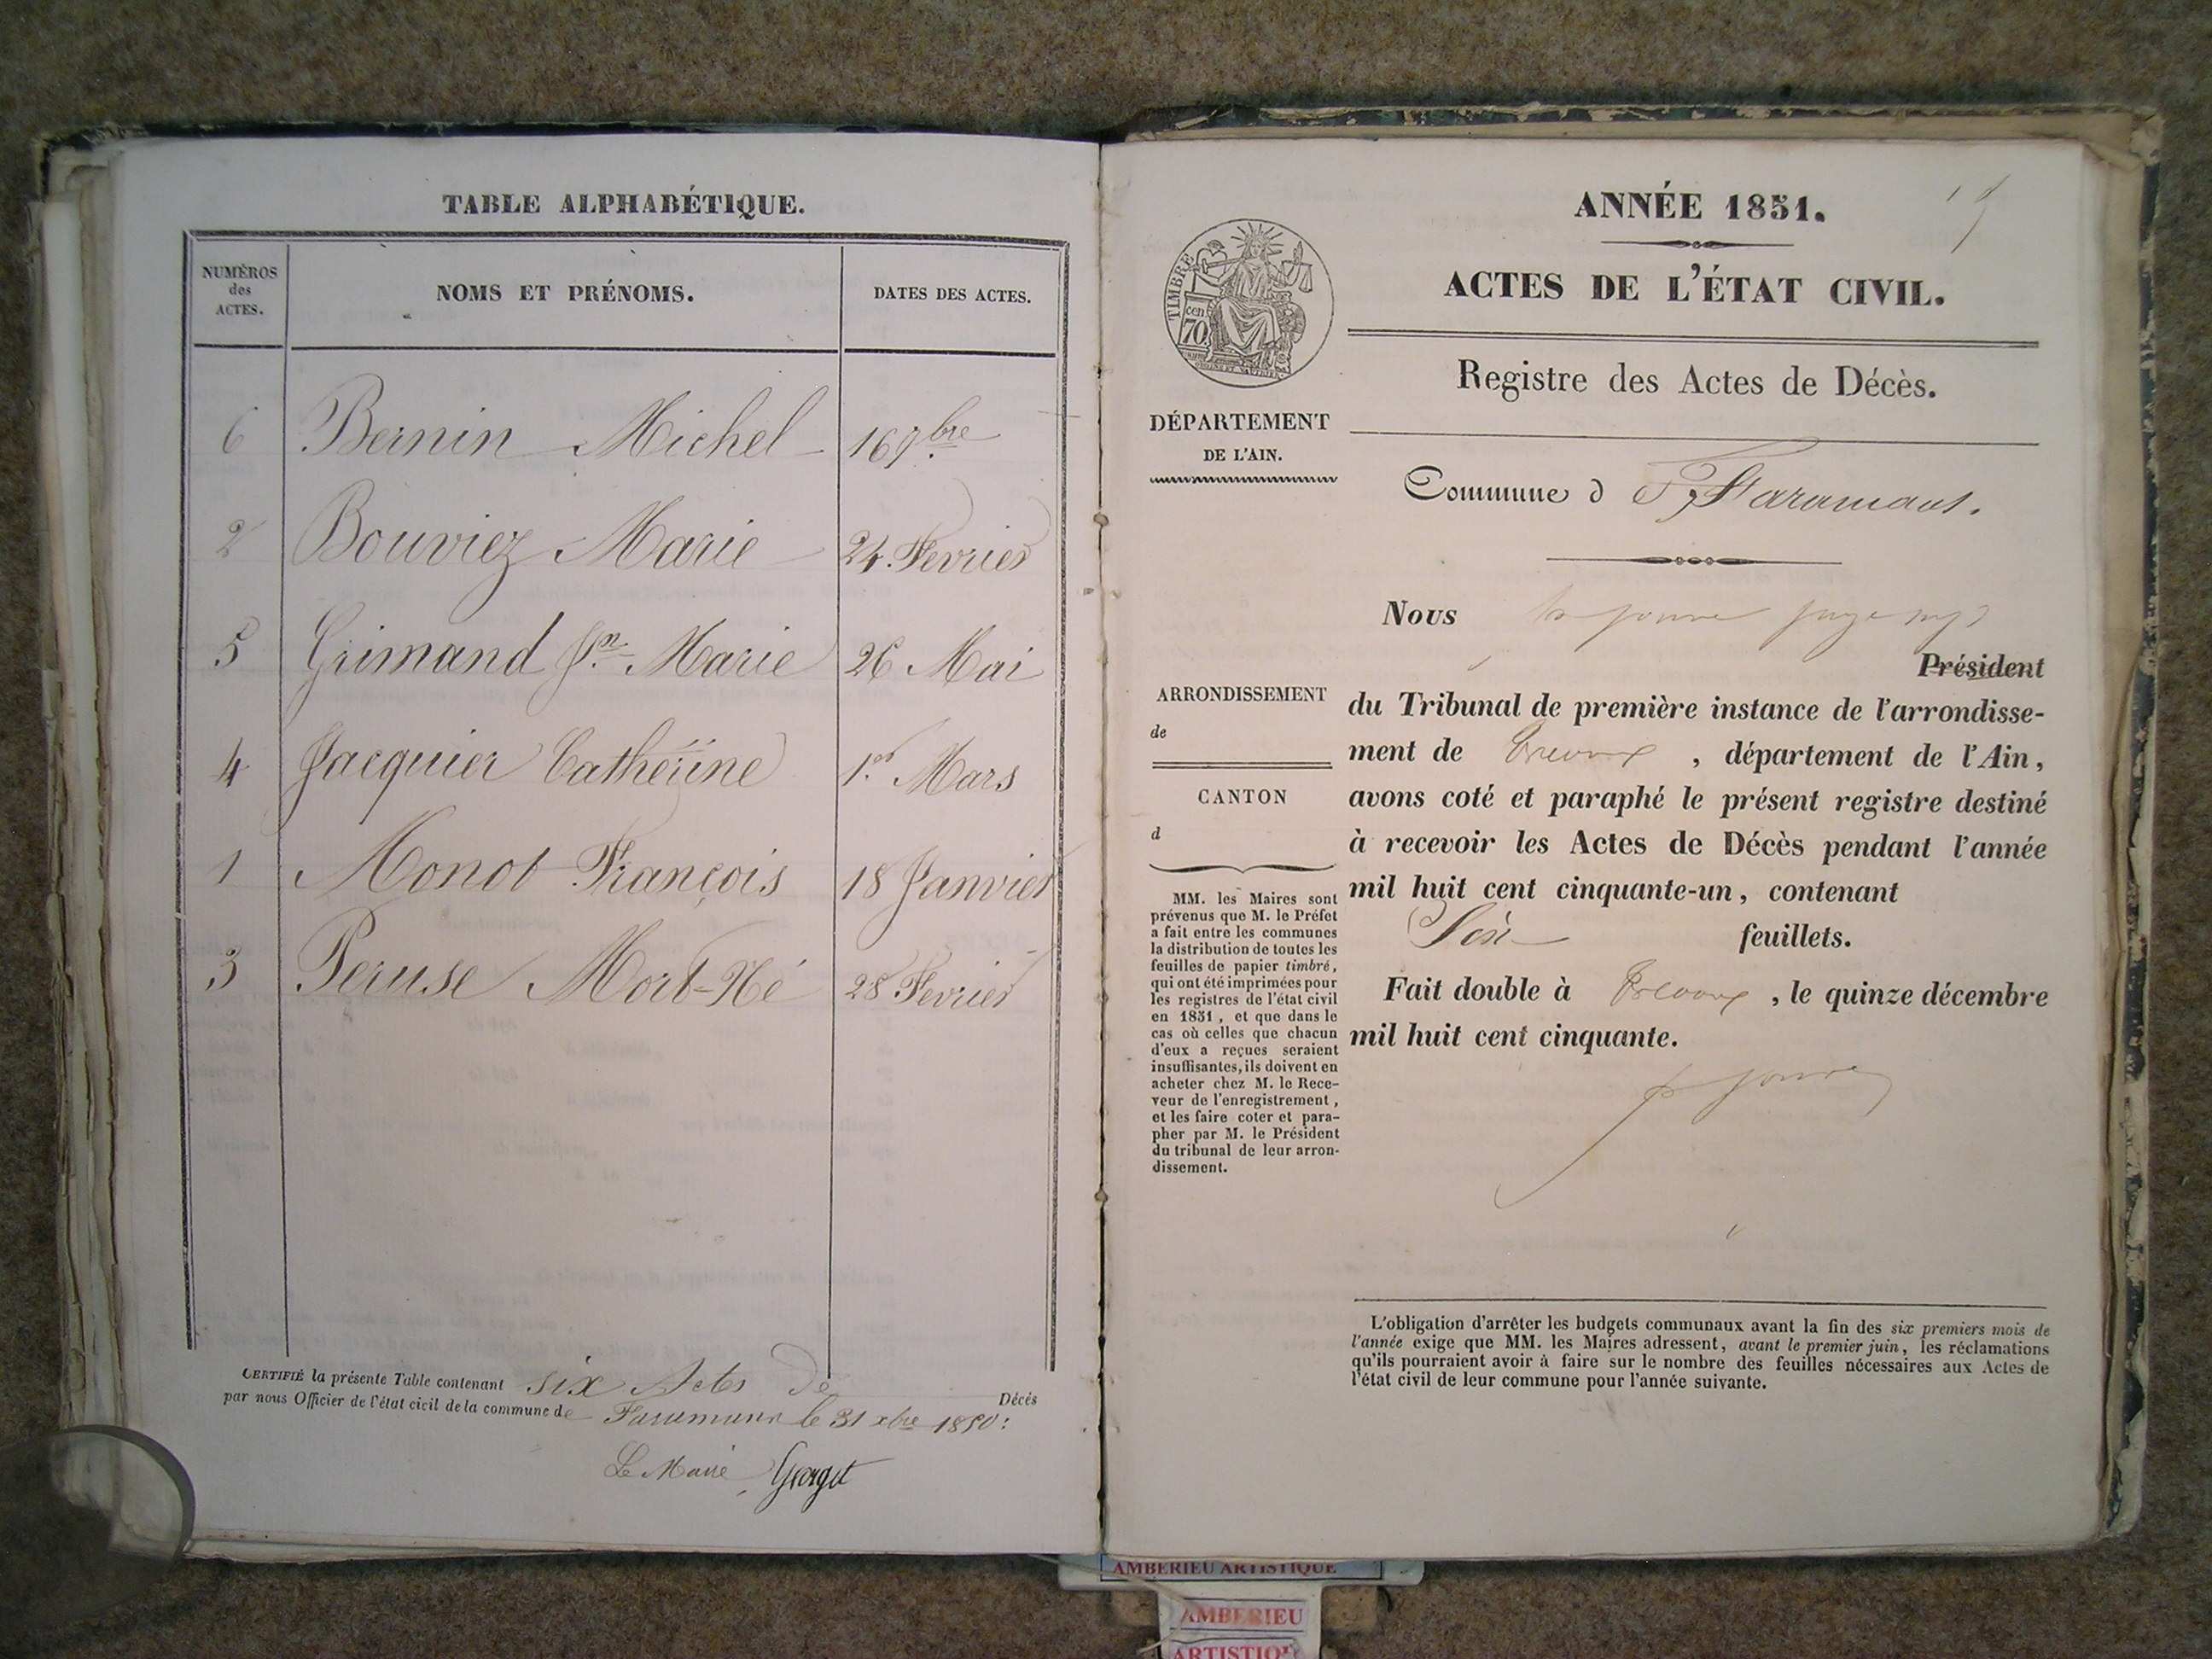 TABLE ALPHABÉTIQUE.
NUMÉROS des ACTES. NOMS ET PRÉNOMS. DATES DES ACTES.
6 Bernin Michel 16 9bre
2 Bouviez Marie 24 Fevrier
5 Grimand Jn Marie 26 Mai
4 Jacquier Catherine 1er Mars
1 Monot François 18 Janvier
3 Peruse Mort-Né 28 Fevrier
CERTIFIÉ la présente Table contenant six Actes de Décès
par nous Officier de l'état civil de la commune de Faramans le 31 xbre 1850:
Le Maire Georget
ANNÉE 1851.
ACTES DE L'ÉTAT CIVIL.
TIMBRE
70 cen
Registre des Actes de Décès.
DÉPARTEMENT
DE L'AIN.
Commune d Faramans.
Nous juge
Président
ARRONDISSEMENT
de
CANTON
d
du Tribunal de première instance de l'arrondisse-
ment de Trevoux, département de l'Ain,
avons coté et paraphé le présent registre destiné
à recevoir les Actes de Décès pendant l'année
mil huit cent cinquante-un, contenant
Six feuillets.
Fait double à Trevoux, le quinze décembre
mil huit cent cinquante.
MM. les Maires sont
prévenus que M. le Préfet
a fait entre les communes
la distribution de toutes les
feuilles de papier timbré,
qui ont été imprimées pour
les registres de l'état civil
en 1851, et que dans le
cas où celles que chacun
d'eux a reçues seraient
insuffisantes, ils doivent en
acheter chez M. le Rece-
veur de l'enregistrement,
et les faire coter et para-
pher par M. le Président
du tribunal de leur arron-
dissement.
L'obligation d'arrêter les budgets communaux avant la fin des six premiers mois de
l'année exige que MM. les Maires adressent, avant le premier juin, les réclamations
qu'ils pourraient avoir à faire sur le nombre des feuilles nécessaires aux Actes de
l'état civil de leur commune pour l'année suivante.
AMBERIEU ARTISTIQUE
AMBERIEU
ARTISTIQUE